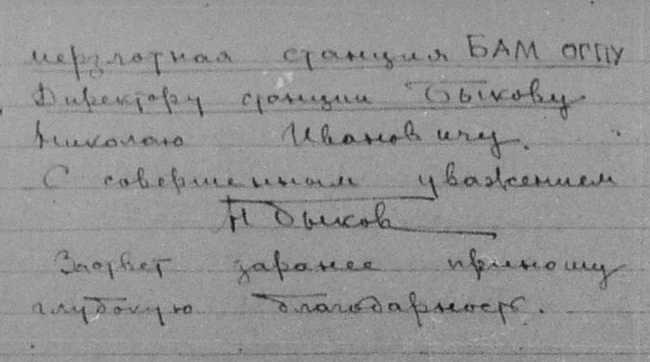 мерзлотная станция БАМ ОГПУ
Директору станции Быкову
Николаю Ивановичу.
С совершенным уважением
Н Быков
За ответ заранее приношу
глубокую благодарность.